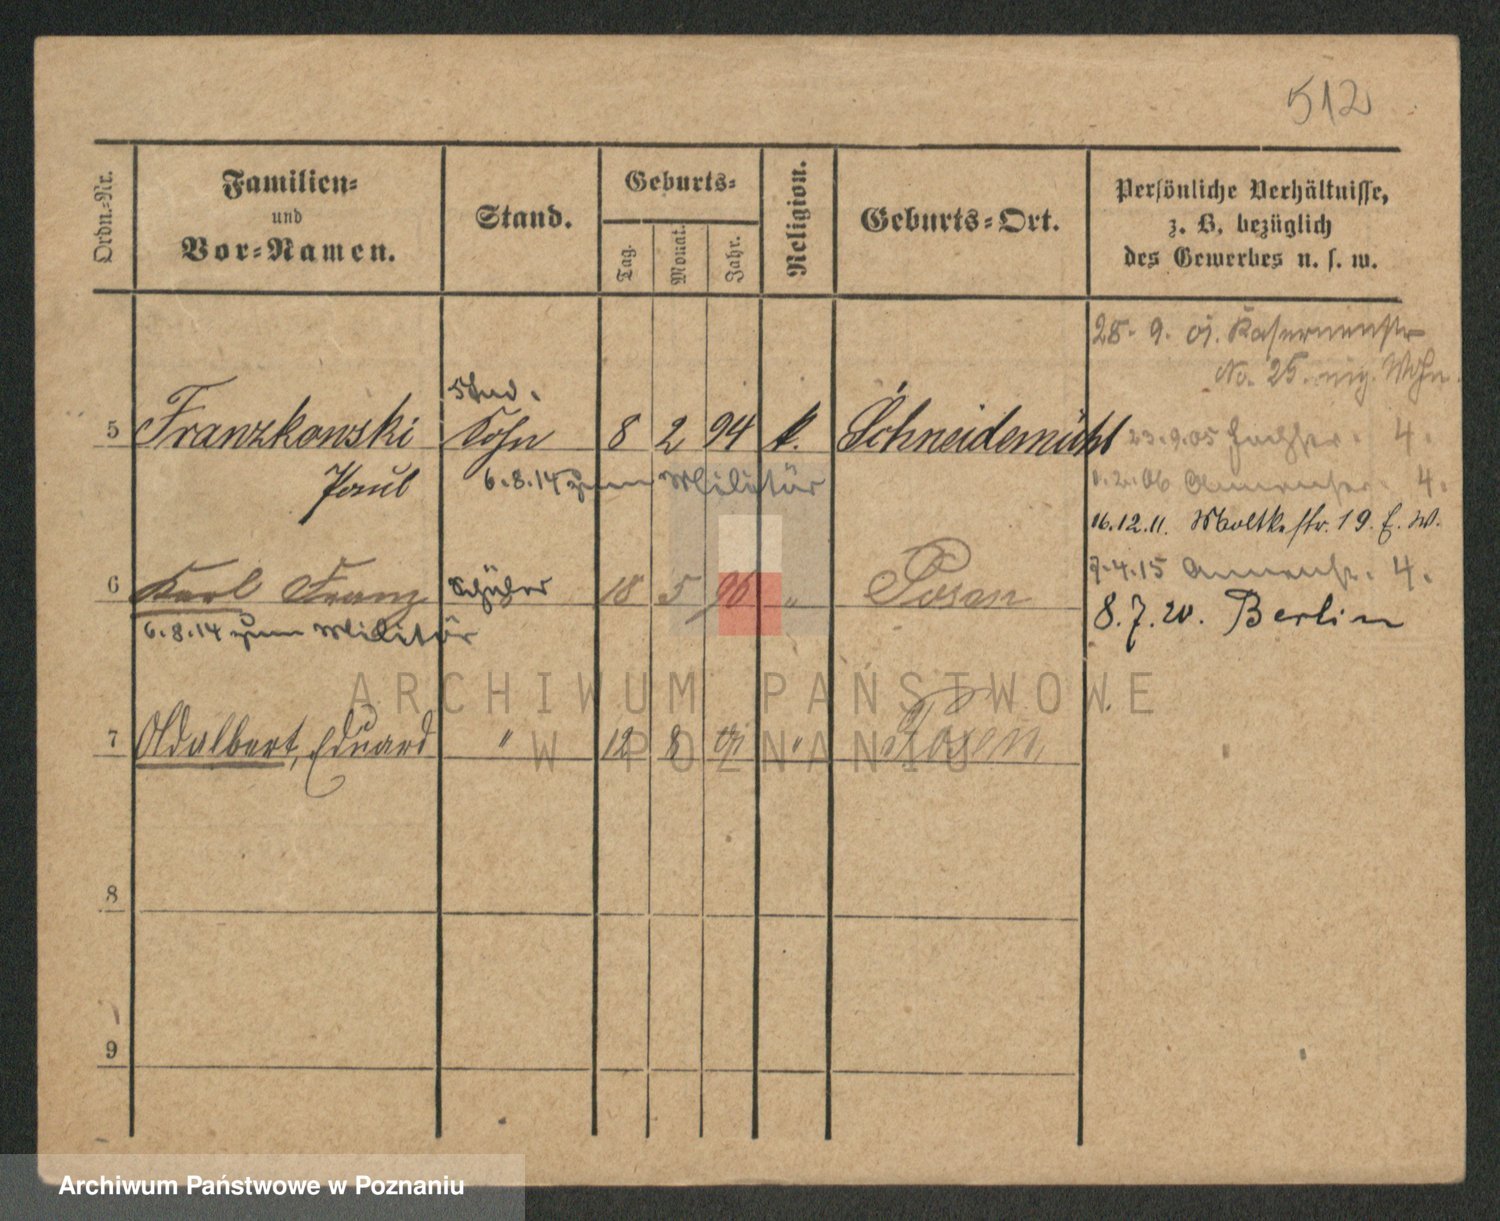 512
Ordn.-Nr.
Familien-
und
Vor-Namen.
Stand.
Geburts-
Tag.
Monat.
Jahr.
Religion.
Geburts-Ort.
Persönliche Verhältnisse,
z. B. bezüglich
des Gewerbes u. s. w.
28. 9. 01. Kasernenstr
No. 25. Wohn.
Stud.
5 Franzkowski Sohn 8 2 94 k. Schneidemühl
23.9.05 4.
Paul 6.8.14 zum Militär
1.2.06 4.
16.12.11. Moltkestr. 19. E. W.
6 Karl Franz Schüler 18 5 96 " Posen
7.4.15 Annenstr. 4.
6.8.14 zum Militär
8.7.20. Berlin
ARCHIWUM PAŃSTWOWE
W POZNANIU
7 Adalbert, Eduard " 12 8 " Posen
8
9
Archiwum Państwowe w Poznaniu